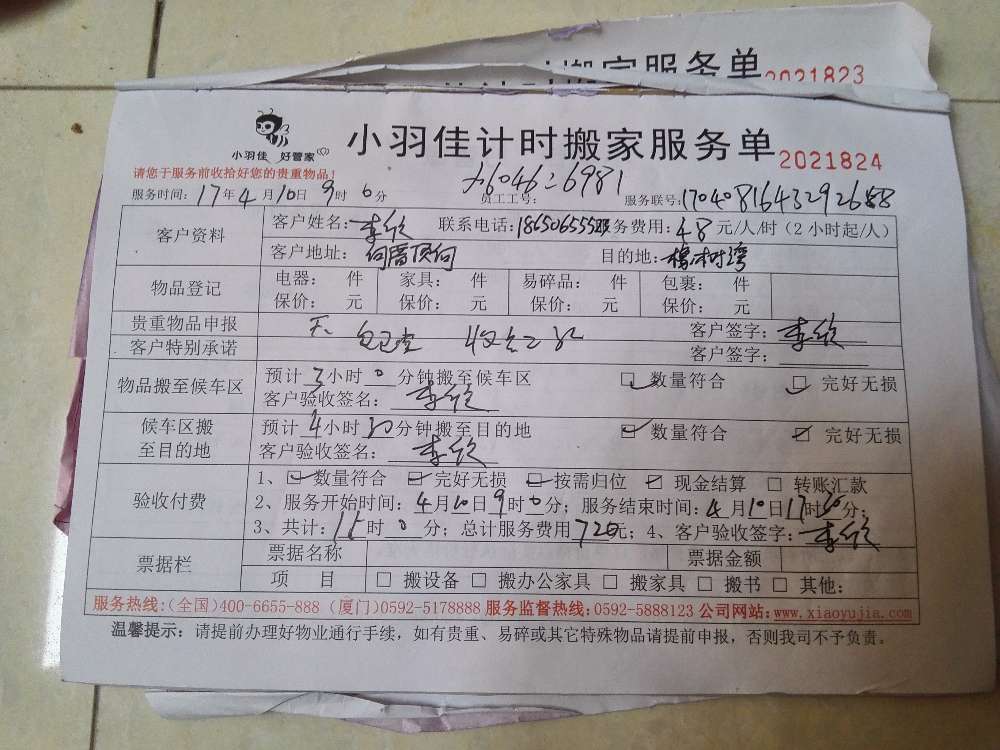 搬家服务单 2021823
小羽佳 好管家
小羽佳计时搬家服务单 2021824
请您于服务前收拾好您的贵重物品!
服务时间: 17年4月10日9时0分 员工工号: 服务联号: 1704081643292688
客户资料 客户姓名: 李欣 联系电话: 服务费用: 48元/人/时 (2小时起/人)
客户地址: 何厝顶何 目的地: 橡树湾
物品登记 电器: 件 家具: 件 易碎品: 件 包裹: 件
保价: 元 保价: 元 保价: 元 保价: 元
贵重物品申报 无 客户签字: 李欣
客户特别承诺 客户签字:
物品搬至候车区 预计3小时0分钟搬至候车区 数量符合 完好无损
客户验收签名: 李欣
候车区搬至目的地 预计4小时30分钟搬至目的地 数量符合 完好无损
客户验收签名: 李欣
验收付费 1、 数量符合 完好无损 按需归位 现金结算 转账汇款
2、服务开始时间: 4月10日9时0分; 服务结束时间: 4月10日17时分;
3、共计: 15时0分; 总计服务费用720元; 4、客户验收签字: 李欣
票据栏 票据名称 票据金额
项 目 搬设备 搬办公家具 搬家具 搬书 其他:
服务热线:(全国)400-6655-888 (厦门)0592-5178888 服务监督热线:0592-5888123 公司网站: www.xiaoyujia.com
温馨提示: 请提前办理好物业通行手续, 如有贵重、易碎或其它特殊物品请提前申报, 否则我司不予负责。